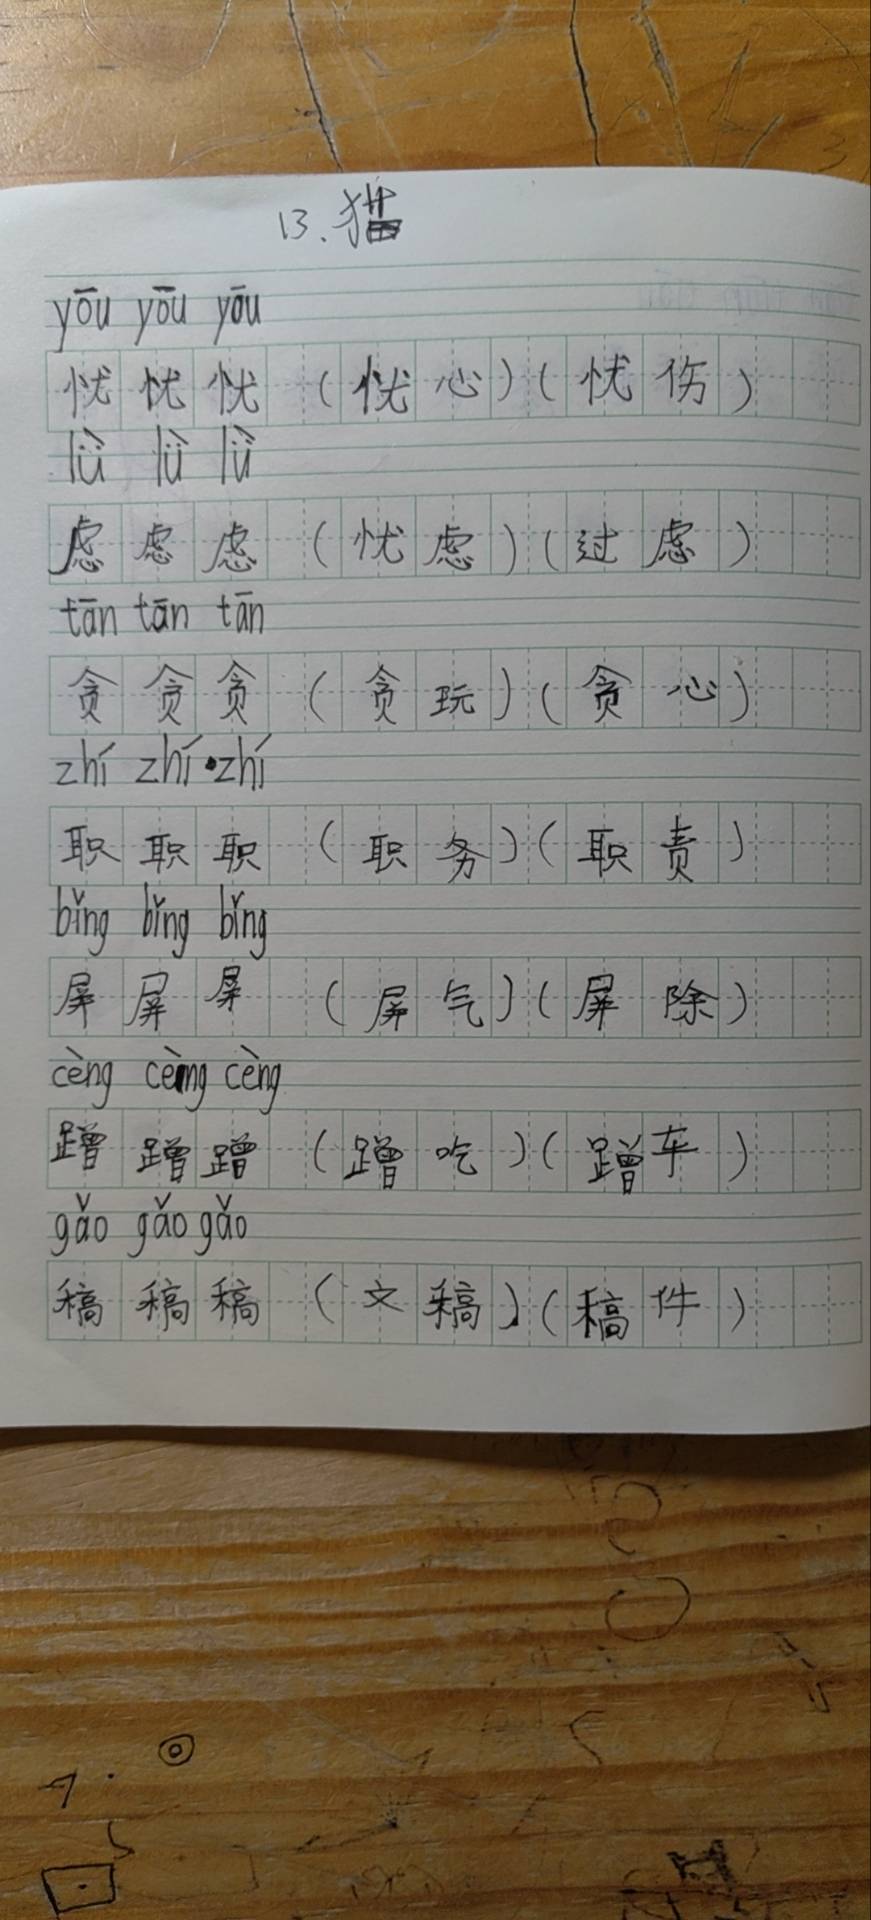 13.猫
yōu yōu yōu
忧忧忧(忧心)(忧伤)
lǜ lǜ lǜ
虑虑虑(忧虑)(过虑)
tān tān tān
贪贪贪(贪玩)(贪心)
zhí zhí zhí
职职职(职务)(职责)
bǐng bǐng bǐng
屏屏屏(屏气)(屏除)
cèng cèng cèng
蹭蹭蹭(蹭吃)(蹭车)
gǎo gǎo gǎo
稿稿稿(文稿)(稿件)